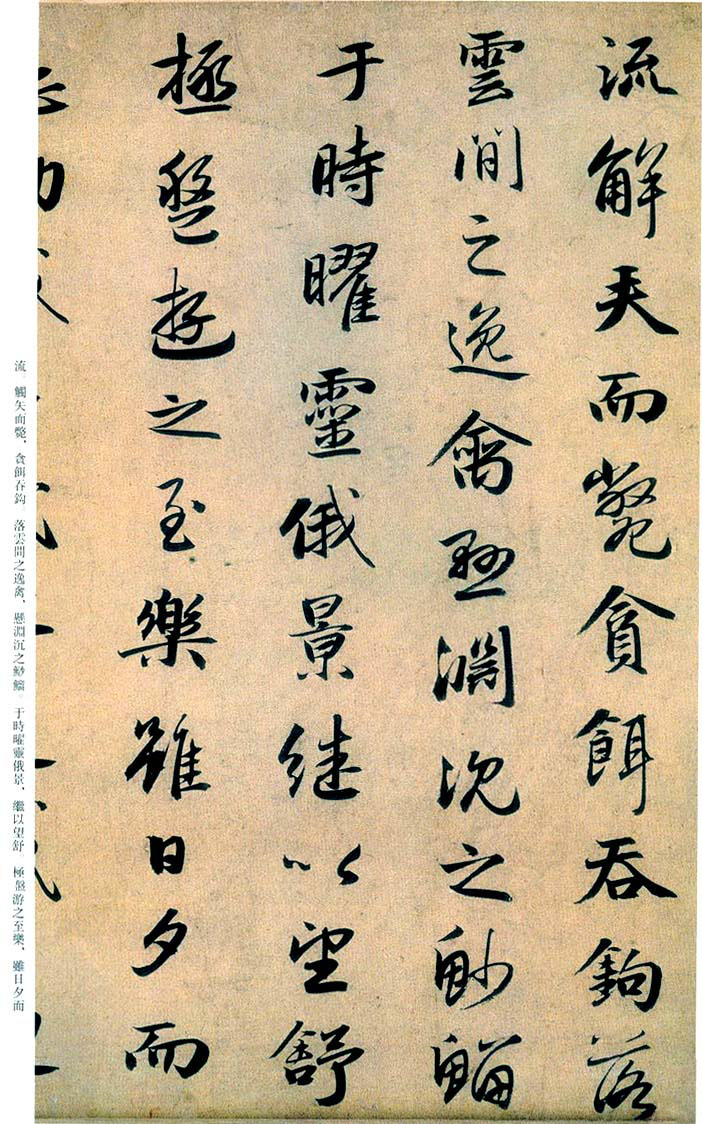 流觧夭而斃貪餌吞鉤落
雲間之逸禽懸淵沉之魦鰡
于時曜靈俄景継以望舒
極盤遊之至樂雖日夕而
流 觸矢而斃，貪餌吞鈎。落雲間之逸禽，懸淵沉之魦鰡。于時曜靈俄景，繼以望舒。極盤游之至樂，雖日夕而